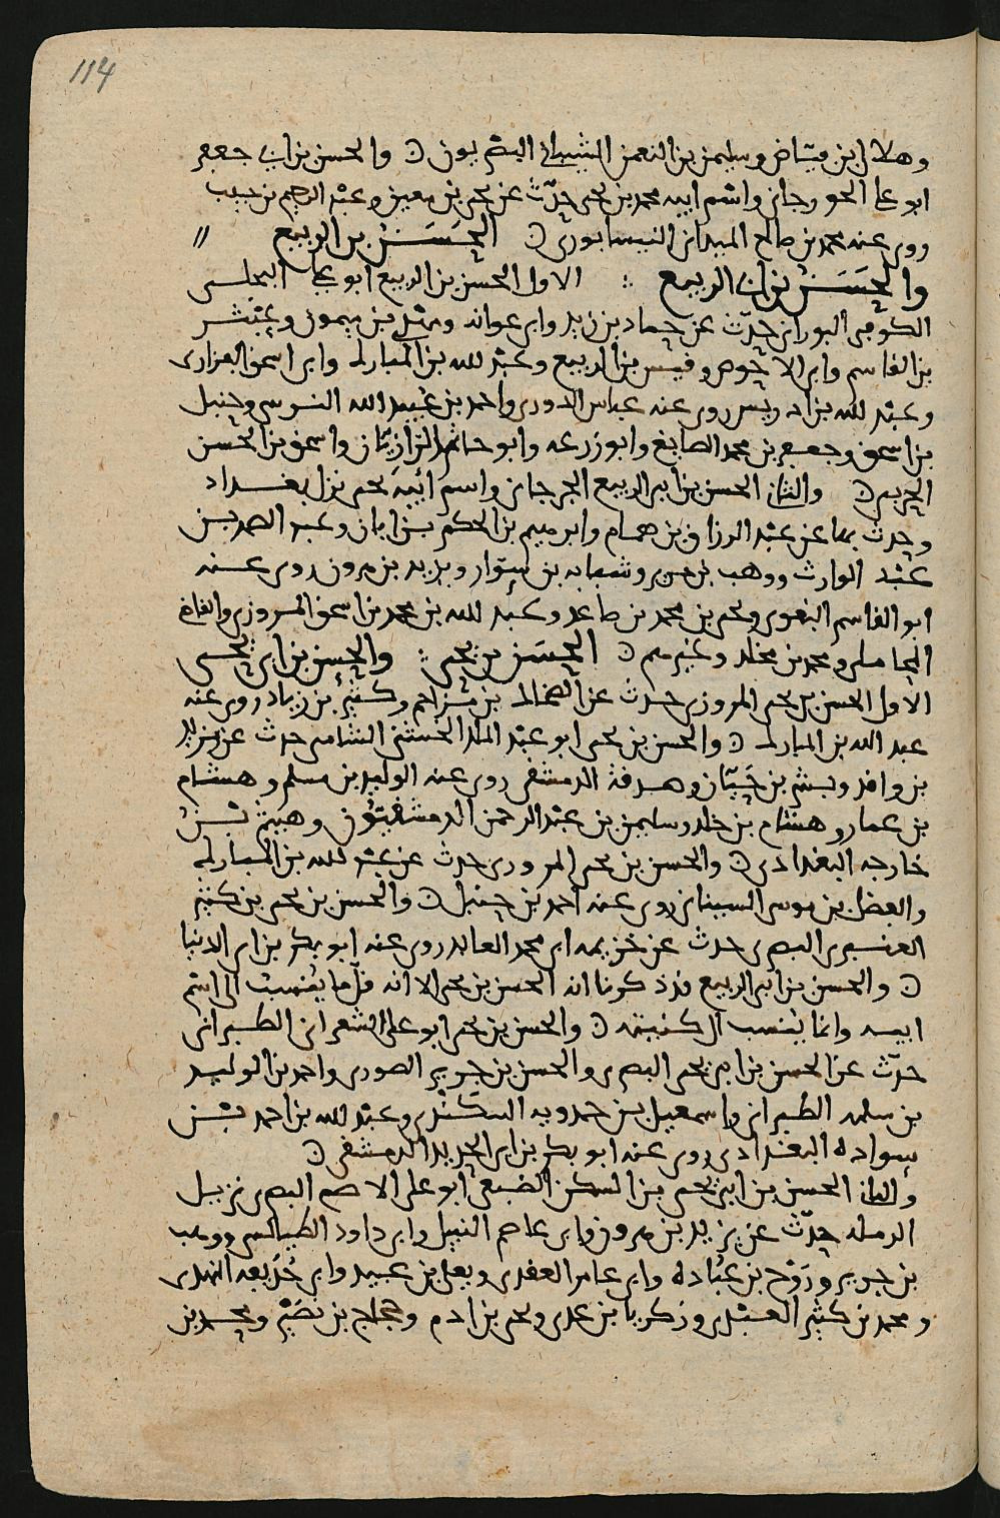 114
وهلال بن فياض وسليمن بن النعمن الشيباني البصريون ۞ والحسن بن ابي جعفر
ابو علي الجوزجاني واسم ابيه محمد بن يحيى حدّث عن يحيى بن معين وعبد الرحيم بن حبيب
روى عنه محمد بن صالح الميداني النيسابوري ۞ الحَسَن بن الربيع
والحَسَن بن ابي الربيع الاول الحسن بن الربيع ابو علي البجلي
الكوفي البوراني حدّث عن حماد بن زيد وابي عوانه ومهدي بن ميمون وعبثر
بن القاسم وابي الاحوص وقيس بن الربيع وعبد الله بن المبارك وابي اسحق الفزاري
وعبد الله بن ادريس روى عنه عباس الدوري واحمد بن عبيد الله النرسي وحنبل
بن اسحق وجعفر بن محمد الصايغ وابو زرعه وابو حاتم الرازيّان واسحق بن الحسن
الحربي ۞ والثاني الحسن بن ابي الربيع الجرجاني واسم ابيه يحيى نزل بغداد
وحدث بها عن عبد الرزاق بن همام وابرهيم بن الحكم بن ابان وعبد الصمد بن
عبد الوارث ووهب بن جرير وشبابه بن سوّار ويزيد بن هرون روى عنه
ابو القاسم البغوي ويحيى بن محمد بن صاعد وعبد الله بن محمد بن اسحق المروزي والقاضي
المحاملي ومحمد بن مخلد وغيرهم ۞ الحسَن بن يحيى والحسن بن ابي يحيى
الاول الحسن بن يحيى المروزي حدث عن الضحاك بن مزاحم وكثير بن زياد روى عنه
عبد الله بن المبارك ۞ والحسن بن يحيى ابو عبد الملك الخشني الشامي حدث عن زيد
بن واقد وبشر بن حيّان وصدقة الدمشقي روى عنه الوليد بن مسلم وهشام
بن عمار وهشام بن خلد وسليمن بن عبد الرحمن الدمشقيّون وهيثم بن
خارجه البغدادي ۞ والحسن بن يحيى المروزي حدث عن عبد الله بن المبارك
والفضل بن موسى السيناني روى عنه احمد بن حنبل ۞ والحسن بن يحيى بن كثير
العنبري البصري حدث عن خزيمه ابي محمد العابد روى عنه ابو بكر بن ابي الدنيا
۞ والحسن بن ابي الربيع قد ذكرنا انه الحسن بن يحيى الا انه قلّ ما يُنسب الى اسم
ابيه وانما يُنسب الى كنيته ۞ والحسن بن يحيى ابو علي الشعراني الطبراني
حدّث عن الحسن بن ابي يحيى البصري والحسن بن جرير الصوري واحمد بن الوليد
بن سلمه الطبراني واسمعيل بن حمدويه البيكندي وعبد الله بن احمد بن
سواده البغدادي روى عنه ابو بكر بن ابي الحديد الدمشقي ۞
والثاني الحسن بن ابي يحيى بن السكن الضبعي ابو علي الاصم البصري نزيل
الرمله حدّث عن يزيد بن هرون وابي عاصم النبيل وابي داود الطيالسي ووهب
بن جرير ورَوْح بن عُباده وابي عامر العقدي ويعلى بن عبيد وابي حُذيفه النهدي
ومحمد بن كثير العبدي وزكريا بن عدي ويحيى بن ادم وحجاج بن نصَيْر ومحمد بن